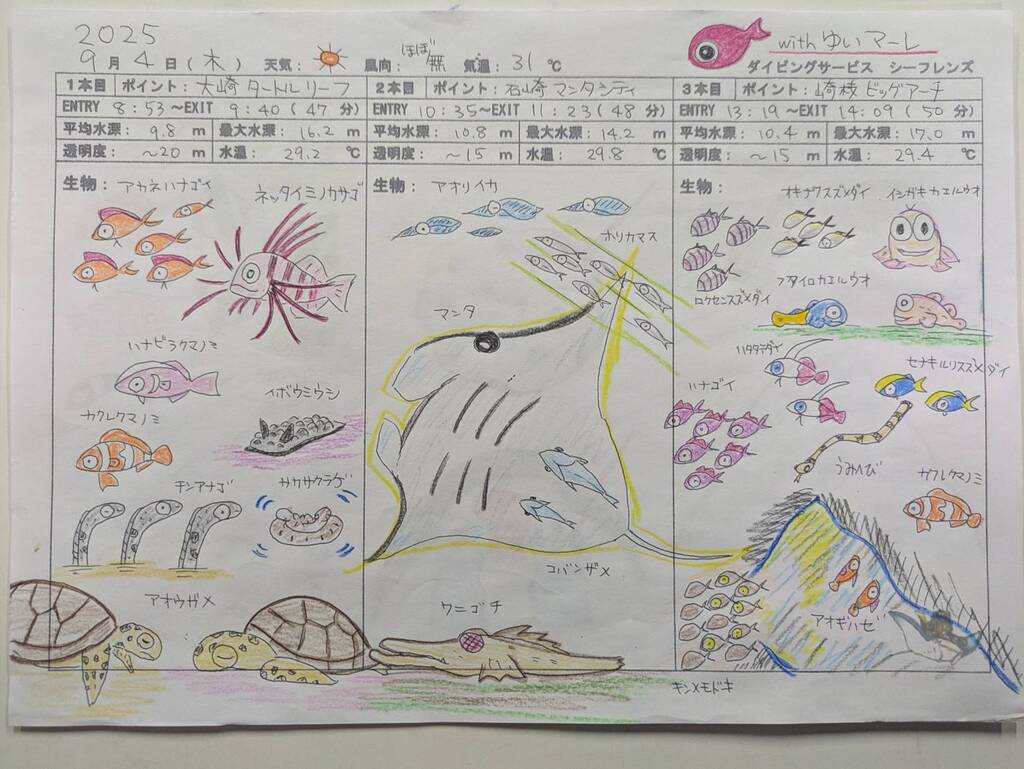 2025
9月4日(木) 天気: 風向: ほぼ無 気温: 31℃
with ゆいマーレ
ダイビングサービス シーフレンズ
1本目 ポイント: 大崎タートルリーフ
ENTRY 8:53~EXIT 9:40(47分)
平均水深: 9.8 m 最大水深: 16.2 m
透明度: ~20 m 水温: 29.2 ℃
生物: アカネハナゴイ
ネッタイミノカサゴ
ハナビラクマノミ
イボウミウシ
カクレクマノミ
チンアナゴ
サカサクラゲ
アオウガメ
2本目 ポイント: 石崎マンタシティ
ENTRY 10:35~EXIT 11:23(48分)
平均水深: 10.8 m 最大水深: 14.2 m
透明度: ~15 m 水温: 29.8 ℃
生物: アオリイカ
ホリカマス
マンタ
コバンザメ
ワニゴチ
3本目 ポイント: 崎枝ビッグアーチ
ENTRY 13:19~EXIT 14:09(50分)
平均水深: 10.4 m 最大水深: 17.0 m
透明度: ~15 m 水温: 29.4 ℃
生物:
オキナワスズメダイ
イシガキカエルウオ
ロクセンスズメダイ
フタイロカエルウオ
ハタタテダイ
セナキルリスズメダイ
ハナゴイ
うみへび
カクレクマノミ
アオギハゼ
キンメモドキ